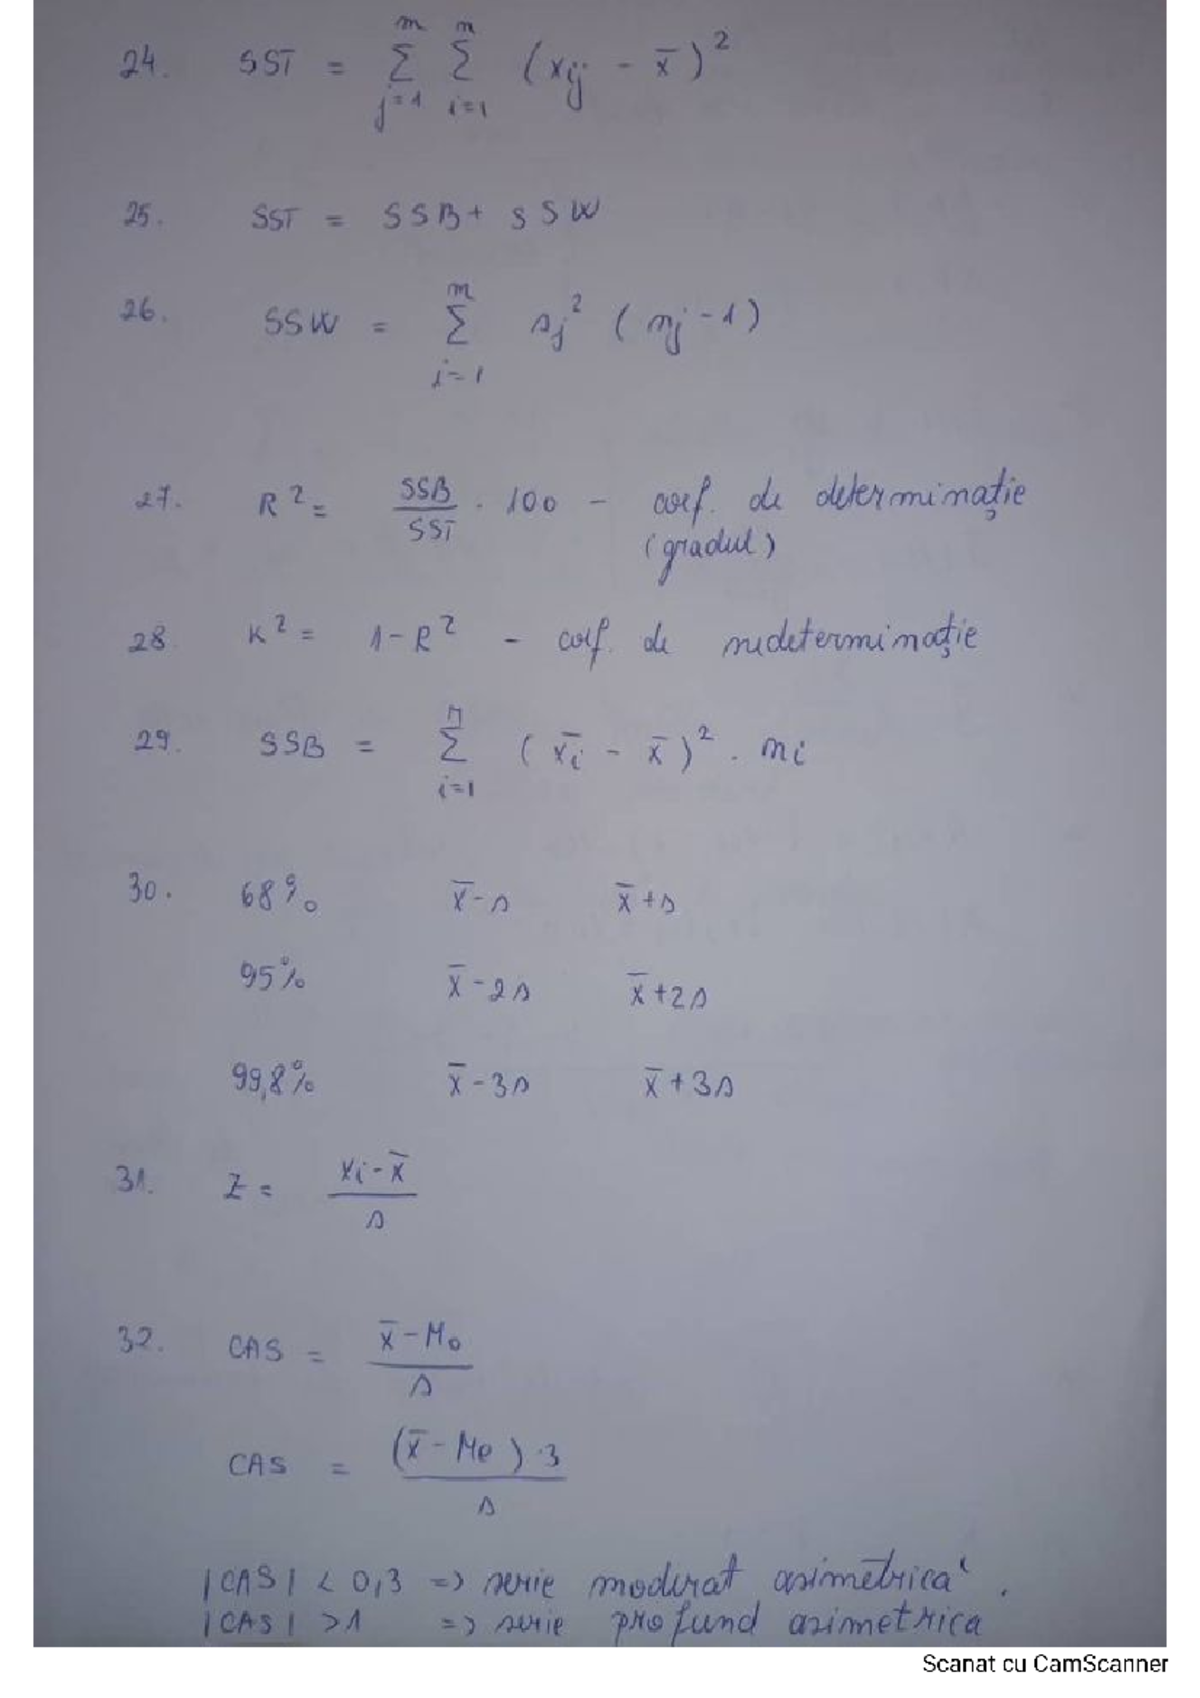 24. SST = m Σ j=1 n Σ i=1 (xij - x̄)²
25. SST = SSB + SSW
26. SSW = m Σ i=1 sj² (nj - 1)
27. R² = SSB / SST · 100 - coef. de determinație
(gradul)
28. K² = 1 - R² - coef. de nedeterminație
29. SSB = n Σ i=1 (x̄i - x̄)² · ni
30. 68% x̄-s x̄+s
95% x̄-2s x̄+2s
99,8% x̄-3s x̄+3s
31. Z = xi - x̄ / s
32. CAS = x̄ - Mo / s
CAS = (x̄ - Me) · 3 / s
|CAS| < 0,3 => serie moderat asimetrica.
|CAS| > 1 => serie profund asimetrica
Scanat cu CamScanner